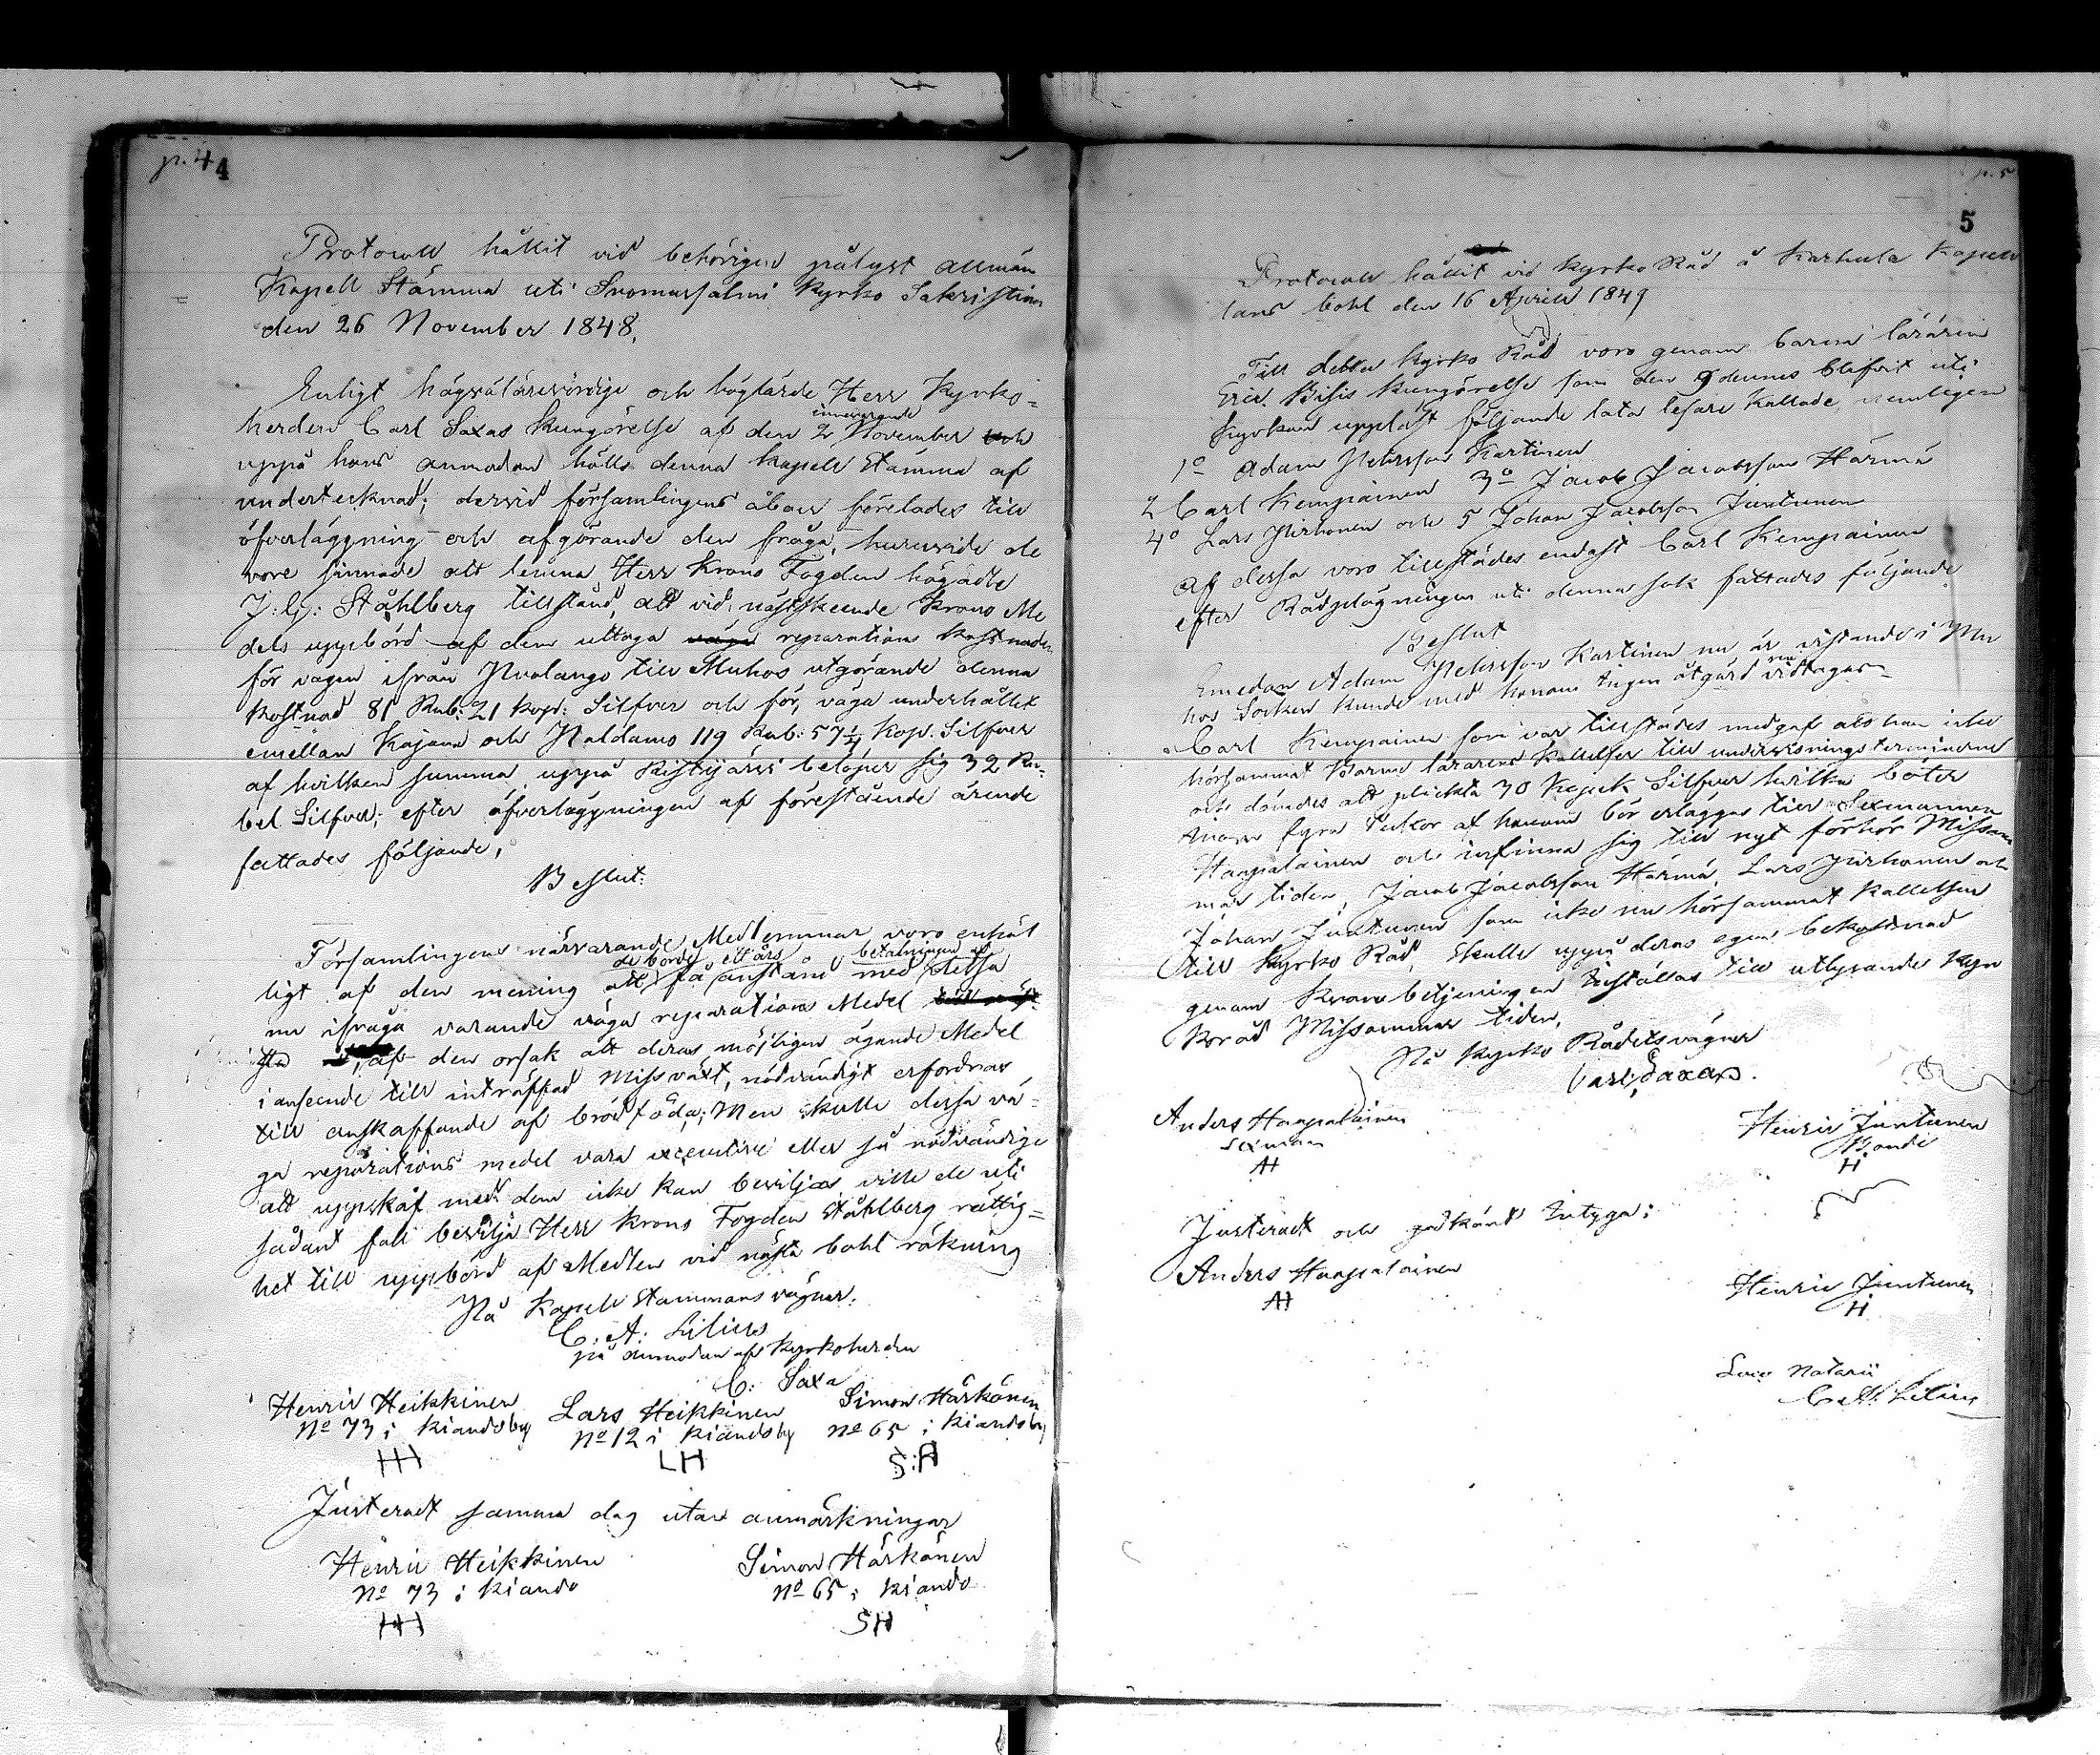 p. 4
4
Protocoll hållit vid behörigen pålyst allmän
Kapell Stämma uti Suomusalmi Kyrko Sakristian
den 26 November 1848.
Enligt högvälärevördige och höglärde Herr Kyrko-
herden Carl Saxas Kungörelse af den 2 innevarande November och
uppå hans anmodan hölls denna Kapell Stämma af
undertecknad; dervid församlingens åboer förelades till
öfverläggning och afgörande den fråga, huruvida de
vore sinnade att lemna Herr Krono Fogden högädle
J: G: Ståhlberg tillstånd, att vid nästskeende Krono Me
dels uppbörd af dem uttaga väga reparations kostnaden
för vägen ifrån Pvolango till Muhos utgörande denna
kostnad 81 Rub: 21 kop: Silfver och för väga underhållet
emellan Kajana och Paldamo 119 Rub: 57¼ Kop. Silfver
af hvilken summa uppå Ristijärvi belöper sig 32 Ru-
bel Silfver; efter öfverläggningen af förestående ärende
fattades följande,
Beslut:
Församlingens närvarande Medlemmar voro enhäl
ligt af den mening att de borde få ett års anstånd med betalningen af dessa
nu ifråga varande väga reparations Medel
af den orsak att deras möjligen ägande Medel
i anseende till inträffad Missväxt, nödvändigt erfordras
till anskaffande af brödföda; Men skulle dessa vä-
ga reparations medel vara executive eller så nödvändige
att uppskof med dem icke kan beviljas ville de uti
sådant fall bevilja Herr Krono Fogden Ståhlberg rättig-
het till uppbörd af Medlen vid nästa bohl räkning
På Kapell Stämmans vägnar:
C: A: Lilius
på anmodan af Kyrkoherden
C: Saxa
Henric Heikkinen Lars Heikkinen Simon Härkönen
No 73 i Kiandsby No 12 i Kiandsby No 65 i Kiandsby
HH LH S:H
Justeradt samma dag utan anmärkningar
Henric Heikkinen Simon Härkönen
No 73 i Kiando No 65 i Kiando
HH SH
p. 5
5
Protocoll hållit vid Kyrko Råd å Karhula Kapell
lans bohl den 16 Aprill 1849
Till detta Kyrko Råd voro genom barna läraren
Eric Kungörelse som den 9 dennes blifvit uti
Kyrkan uppläst följande lata läsare kallade nemligen
1o Adam Pehrsson Kartinen
2 Carl Kempainen 3o Jacob Jacobsson Härmä
4o Lars Pirhonen och 5 Johan Jacobsson Juntunen
Af dessa voro tillstädes endast Carl Kempainen
efter Rådplägningen uti denna sak fattades följande
Beslut
Emedan Adam Pehrsson Kartinen nu är vistande i Mu
hos Socken kunde med honom ingen åtgärd nu vidtagas
Carl Kempainen som var tillstädes medgaf att han icke
hörsammat Barna lärarens kallelser till undervisnings terminerne
och dömdes att plickta 30 Kopek Silfver hvilka böter
innom fyra Veckor af honom bör erläggas till Sexmannen
Haapalainen och infinna sig till nyt förhör Missom
mar tiden, Jacob Jacobsson Härmä, Lars Pirhonen och
Johan Juntunen som icke nu hörsammat kallelsen
till Kyrko Råd, skulle uppå deras egen bekostnad
genom Kronobetjeningen inställas till utlysande Kyr
ko råd Missommar tiden,
På Kyrko Rådets vägnar
Carl Saxa.
Anders Haapalainen Henric Juntunen
Sexman Bonde
AH H
Justeradt och godkänt intyga:
Anders Haapalainen Henric Juntunen
AH H
Loco Notarii
C. A. Lilius